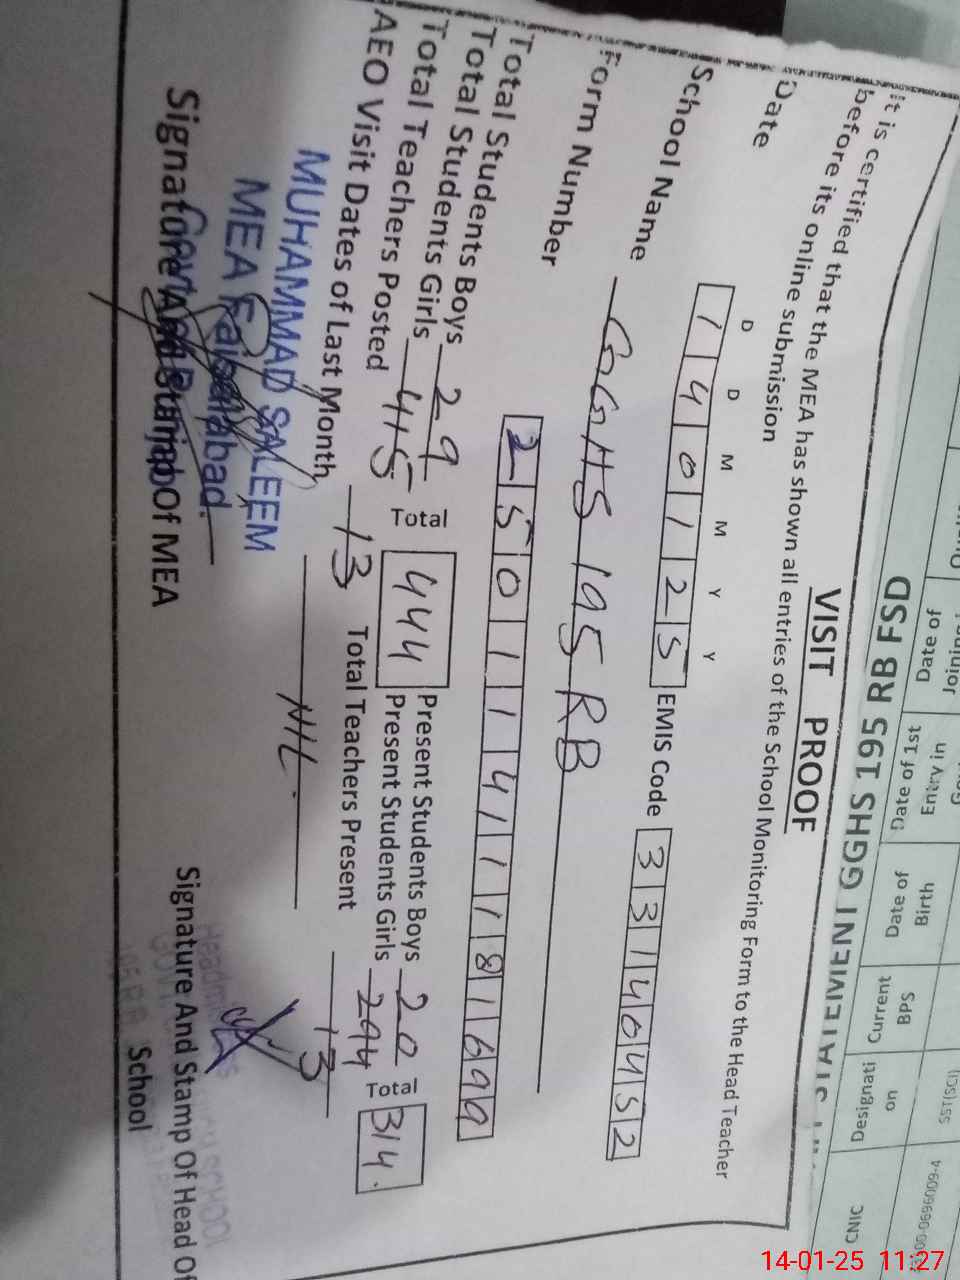 GOVERNMENT GGHS 195 RB FSD
CNIC
Designati on
Current Bps
Date of Birth
Date of 1st Entry in
Date of Joining
SST(SCI)
VISIT PROOF
it is certified that the MEA has shown all entries of the School Monitoring Form to the Head Teacher
before its online submission
D D M M Y Y
Date 1 4 0 1 2 5 EMIS Code 3 3 1 4 0 4 5 2
School Name GGHS 195 RB
Form Number 2 5 0 1 1 4 1 1 8 1 6 9 9
Total Students Boys 29 Total 444 Present Students Boys 20 Total 314.
Total Students Girls 415 Present Students Girls 294
Total Teachers Posted 13 Total Teachers Present 13
AEO Visit Dates of Last Month NIL.
MUHAMMAD SALEEM
MEA Faisalabad.
Signature And Stamp Of MEA
Signature And Stamp Of Head Of
School
14-01-25 11:27